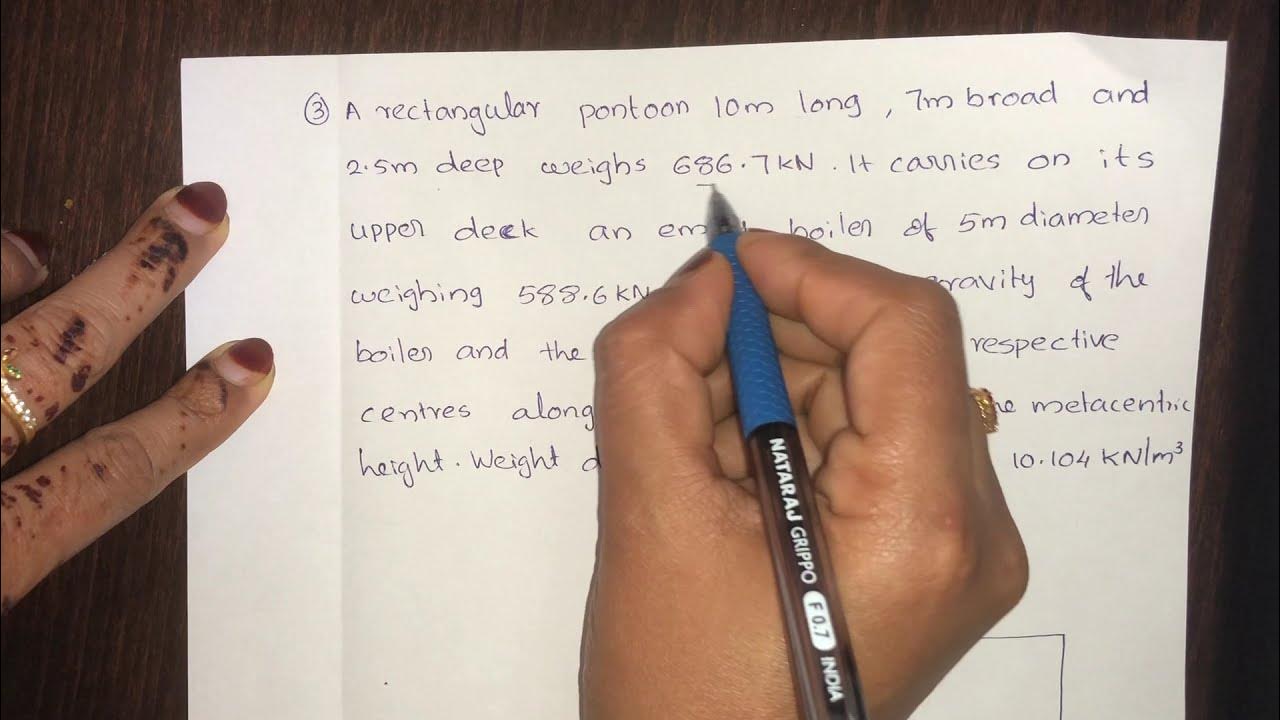 ③ A rectangular pontoon 10m long, 7m broad and
2.5m deep weighs 686.7 kN. It carries on its
upper deck an em boiler of 5m diameter
weighing 588.6 kN gravity of the
boiler and the respective
centres along metacentric
height. Weight 10.104 KN/m³
NATARAJ GRIPPO F 0.7 INDIA